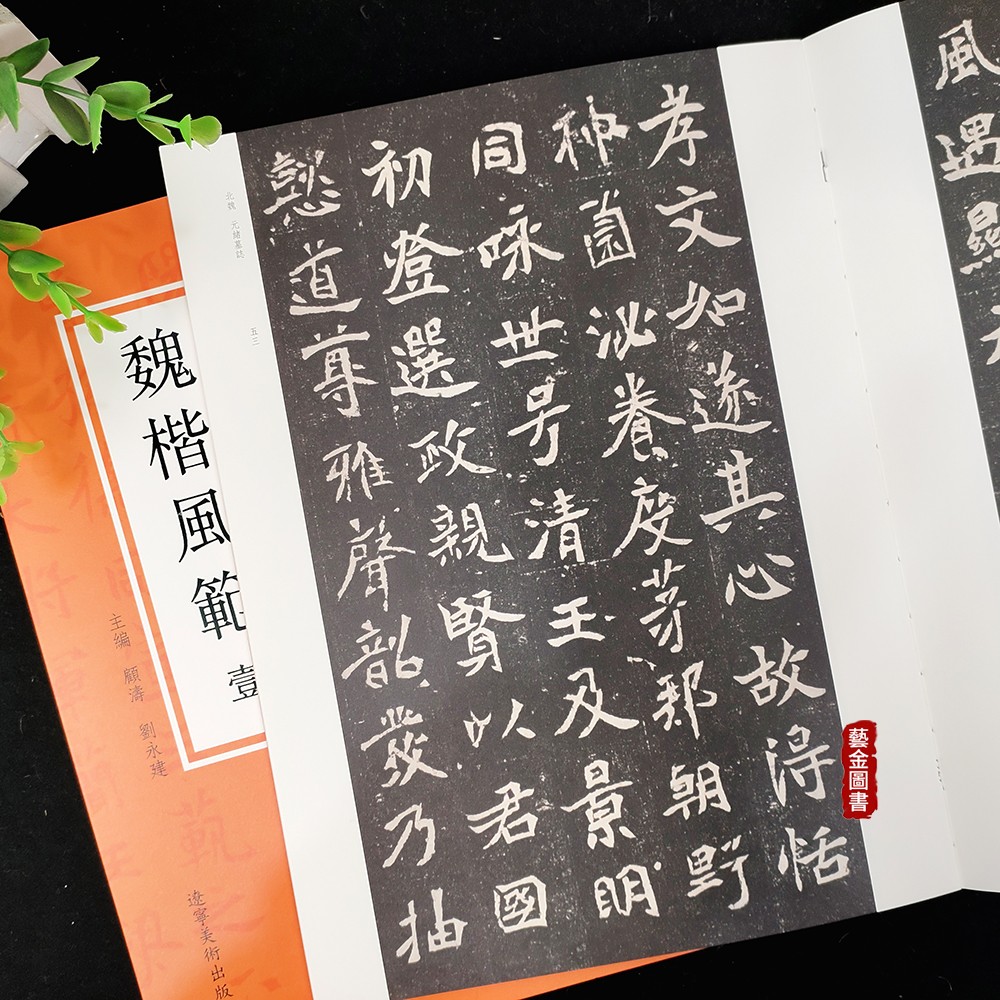 風遇顯
孝文如遂其心故得恬
神薗泌養度茅邦朝野
同詠世号清王及景明
初登選政親賢以君國
懿道尊雅聲韶發乃抽
北魏 元緒墓誌
五三
魏楷風範
壹
主編 顧濤 劉永建
遼寧美術出版
藝金圖書